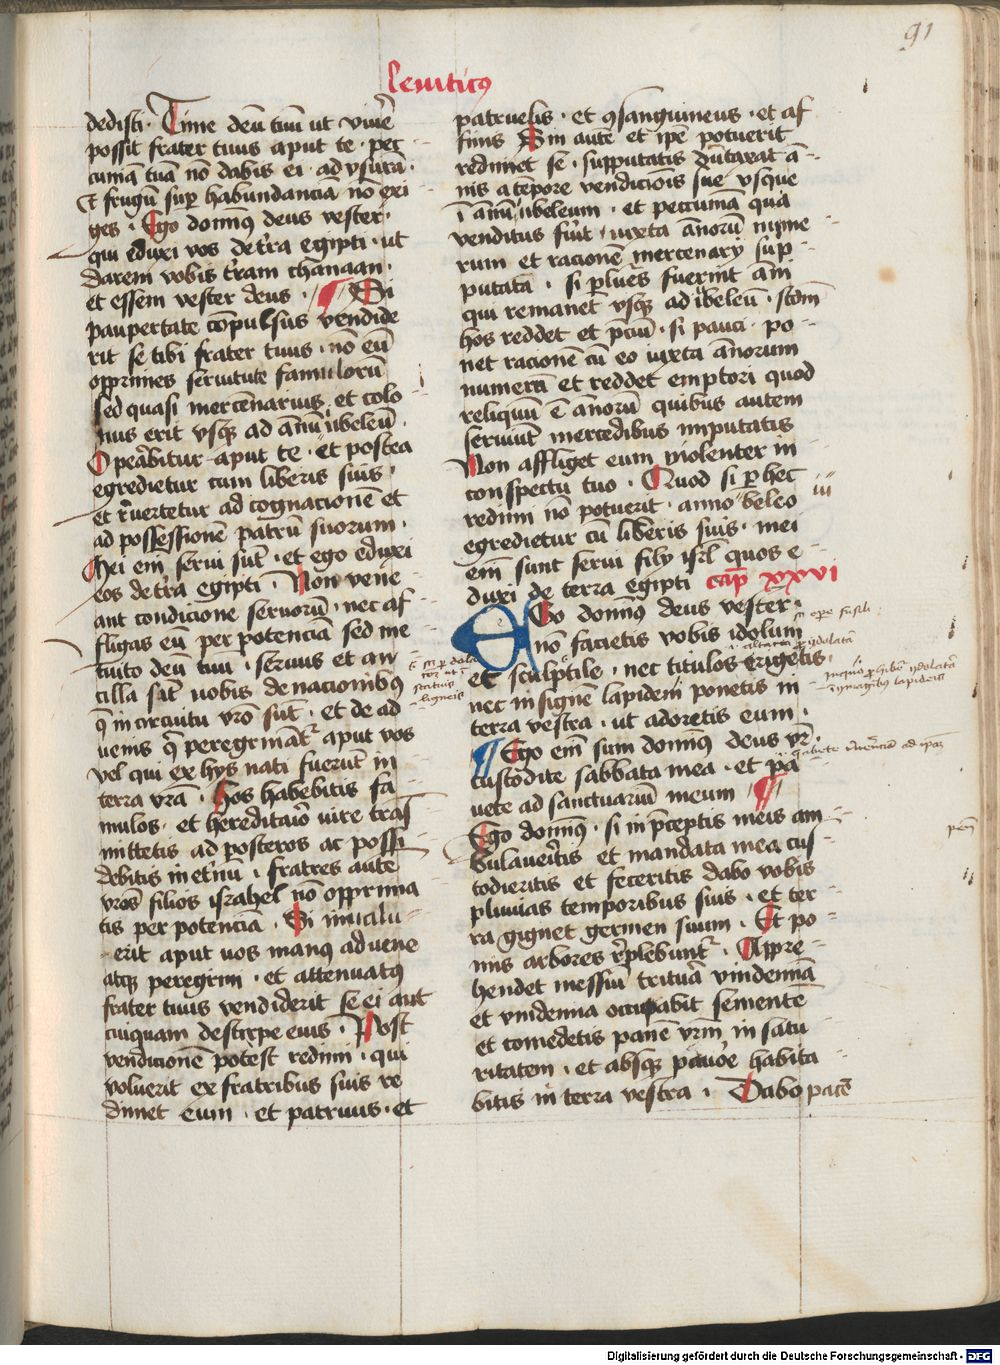 91
leuiticus
dedisti . Time deū tuū ut viue͛
possit frater tuus aput te . pec
cuniā tuā nō dabis ei . ad vsurā
Et frugū suꝑ habundancia nō exi
ges . Ego domin9 deus vester .
qui eduxi vos de t͛ra egipti . ut
darem vobis t͛ram chanaan .
et essem vester deus . Si
paupertate cōpulsus vendide
rit se tibi frater tuus . nō eū
opprimes seruitute famulorū
sed quasi mercenarius et colo
nus erit vsqꝫ ad annū iubeleū .
Opeabitur aput te . et postea
egredietur cum liberis suis
et r͛uertetur ad cognacionē et
ad possessionē patrū suorum .
Mei em̄ serui sūt . et ego eduxi
eos de t͛ra egipti . Non vene
ant condicione seruorū . nec af
fligas eū per potenciā sed me
tuito deū tuū . seruus et an
cilla sīt uobis de nacionibus
q̄ in circuitu vr̄o sūt . et de ad
uenis q̄ peregrināt᷑ aput vos
vel qui ex hys nati fuerūt in
terra vrā . Hos habebitis fa
mulos . et hereditaͥo iure trās
mittetis ad posteros ac possi
debitis in et͛nū . fratres autē
vros̄ filios israhel nō opprima
tis per potenciā . Si inualu
erit aput uos manus aduene
atqꝫ peregrini . et attenuatus
frater tuus vendiderit se ei aut
cuiquam de stirpe eius . Post
vendicionē potest redimi . qui
voluerit ex fratribus suis re
dimet eum . et patruus . et
patruelis . et ꝯsanguineus . et af
finis Sin autē et ip̄e potuerit
redimet se . supputatis dūtaxat ā
nis a tēpore vendiciōis sue vsque
ī annū iubeleum . et peccuniā qua
venditus fuit iuxta annorū nume
rum et racionē mercenary sup
putatā . si ꝑlures fuerint an
qui remanēt vsqꝫ ad iubeleū . scdm̄
hos reddet et p̄ciū . si pauci . po
net racionē cū eo iuxta annorum
numerū et reddet emptori quod
reliquū ē annorū quibus autem
seruiuit mercedibus imputatis
Non affliget eum violenter in
conspectu tuo . Quod si ꝑ hec
redimi nō potuerit . anno iubeleo
egredietur cū liberis suis . mei
em̄ sunt serui fily isrl̄ quos e
duxi de terra egipti cap̄ xxvi
Ego domin9 deus vester .
nō facietis vobis idolum
et sculptile . nec titulos erigetis .
nec insignē lapidem ponetis in
terra vestra . ut adoretis eum .
Ego em̄ sum domin9 deus vr̄
custodite sabbata mea . et pa
uete ad sanctuariū meum
Ego domin9 . si in p̄ceptis meis am
bulaueritis et mandata mea cus
todieritis et feceritis dabo vobis
pluuias temporibus suis . et ter
ra gignet germen suum . Et po
mis arbores r͛plebunt᷑ . Appre
hendet messiū tritura vindemiā
et vindemia occupabit sementē
et comedetis panē vrm̄ in satu
ritatem . et absqꝫ pauore habita
bitis in terra vestra . Dabo pacē
Digitalisierung gefördert durch die Deutsche Forschungsgemeinschaft - DFG